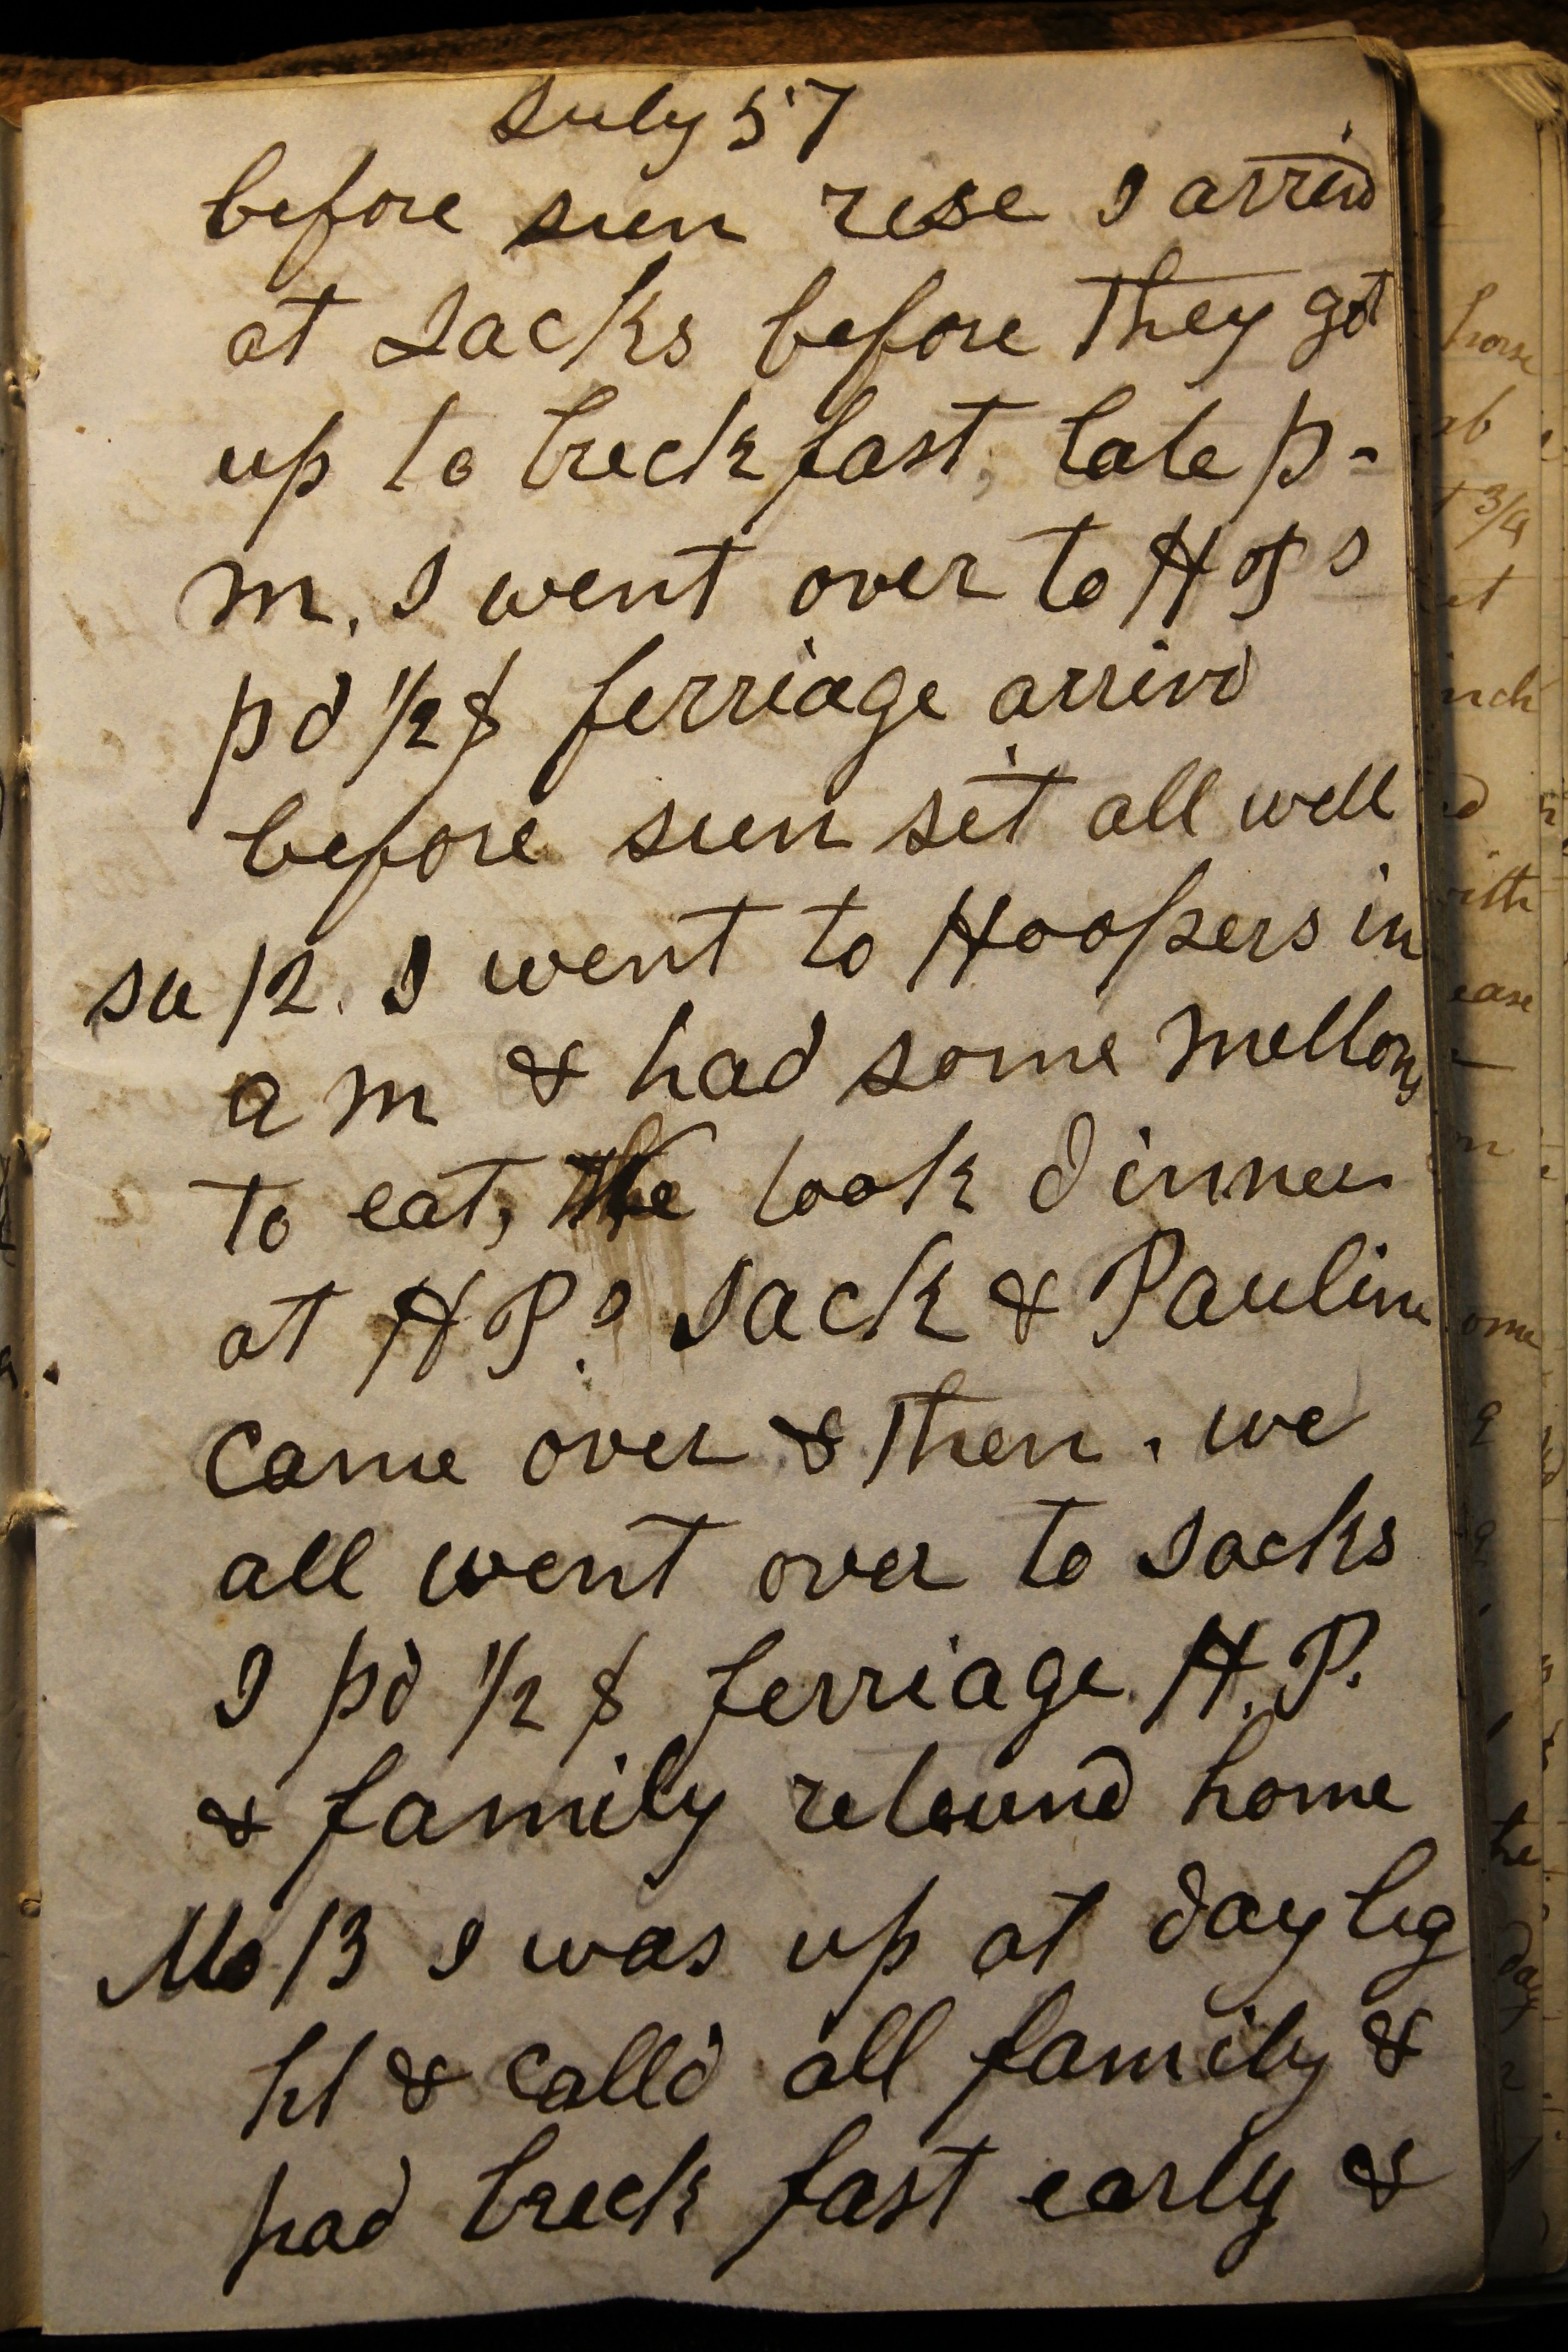 July 57
before sun rise I arrivd
at Jacks before they got
up to breckfast, late p-
m, I went over to H P s
pd 1/2 $ ferriage arrivd
before sun set all well
su 12. I went to Hoopers in
a m & had some mellons
to eat, the took dinner
at H P.s Jack & Pauline
came over & then. we
all went over to Jacks
I pd 1/2 $ ferriage. H. P.
& family returnd home
Mo 13 I was up at day lig
ht & calld all family &
had breck fast early &